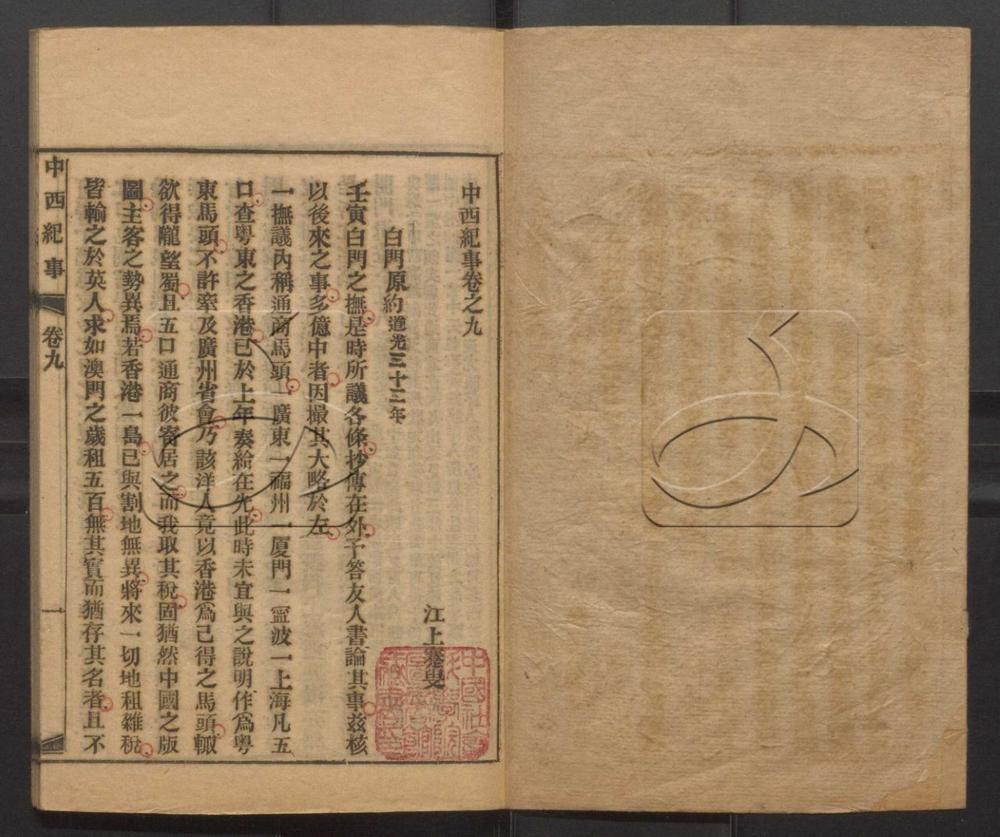 中西紀事卷之九
江上蹇叟
白門原約道光三十二年
壬寅白門之撫是時所議各條抄傳在外予答友人書論其事茲核
以後來之事多億中者因撮其大略於左
一撫議內稱通商馬頭一廣東一福州一厦門一寗波一上海凡五
口查粤東之香港已於上年奏給在先此時未宜與之說明作爲粤
東馬頭不許牽及廣州省會乃該洋人竟以香港爲己得之馬頭輙
欲得隴望蜀且五口通商彼寄居之而我取其稅固猶然中國之版
圖主客之勢異焉若香港一島已與割地無異將來一切地租雜稅
皆輸之於英人求如澳門之歲租五百無其實而猶存其名者且不
中西紀事
卷九
一